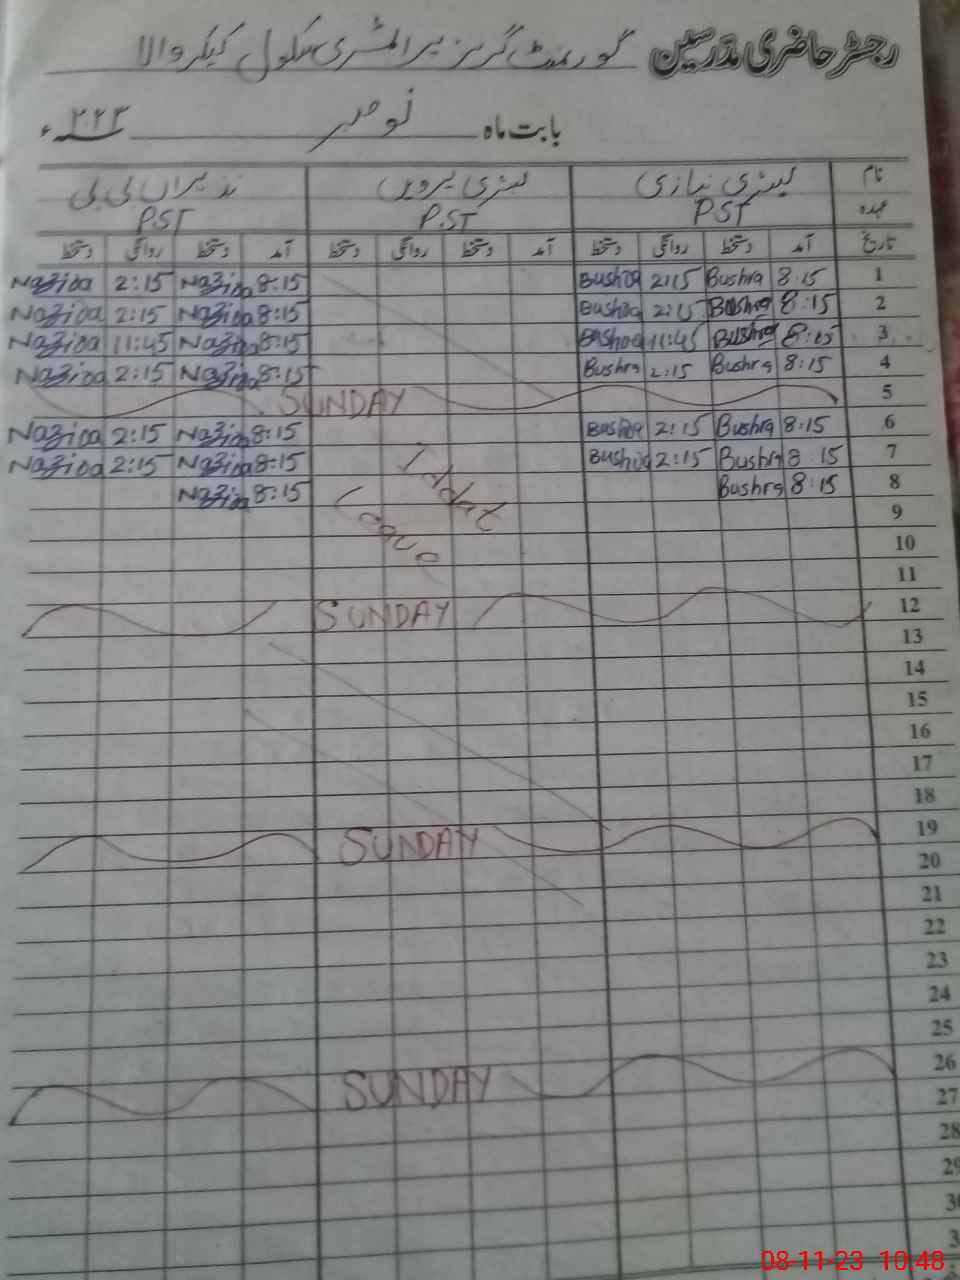 رجسٹر حاضری مدرسین گورنمنٹ گرلز پرائمری سکول کیکر والا
بابت ماہ نومبر ۲۰۲۳ء
نام بشریٰ نیازی بشریٰ پروین نذیراں بی بی
عہدہ PST P.ST P.ST
تاریخ آمد دستخط روانگی دستخط آمد دستخط روانگی دستخط آمد دستخط روانگی دستخط
1 8:15 Bushra 2:15 Bushra 8:15 Nazira 2:15 Nazira
2 8:15 Bushra 2:15 Bushra 8:15 Nazira 2:15 Nazira
3 8:15 Bushra 11:45 Bushra 8:15 Nazira 11:45 Nazira
4 8:15 Bushra 2:15 Bushra 8:15 Nazira 2:15 Nazira
5 SUNDAY
6 8:15 Bushra 2:15 Bushra 8:15 Nazira 2:15 Nazira
7 8:15 Bushra 2:15 Bushra 8:15 Nazira 2:15 Nazira
8 8:15 Bushra 8:15 Nazira
Iddat
Leave
9
10
11
12 SUNDAY
13
14
15
16
17
18
19 SUNDAY
20
21
22
23
24
25
26 SUNDAY
27
28
29
08-11-23 10:48